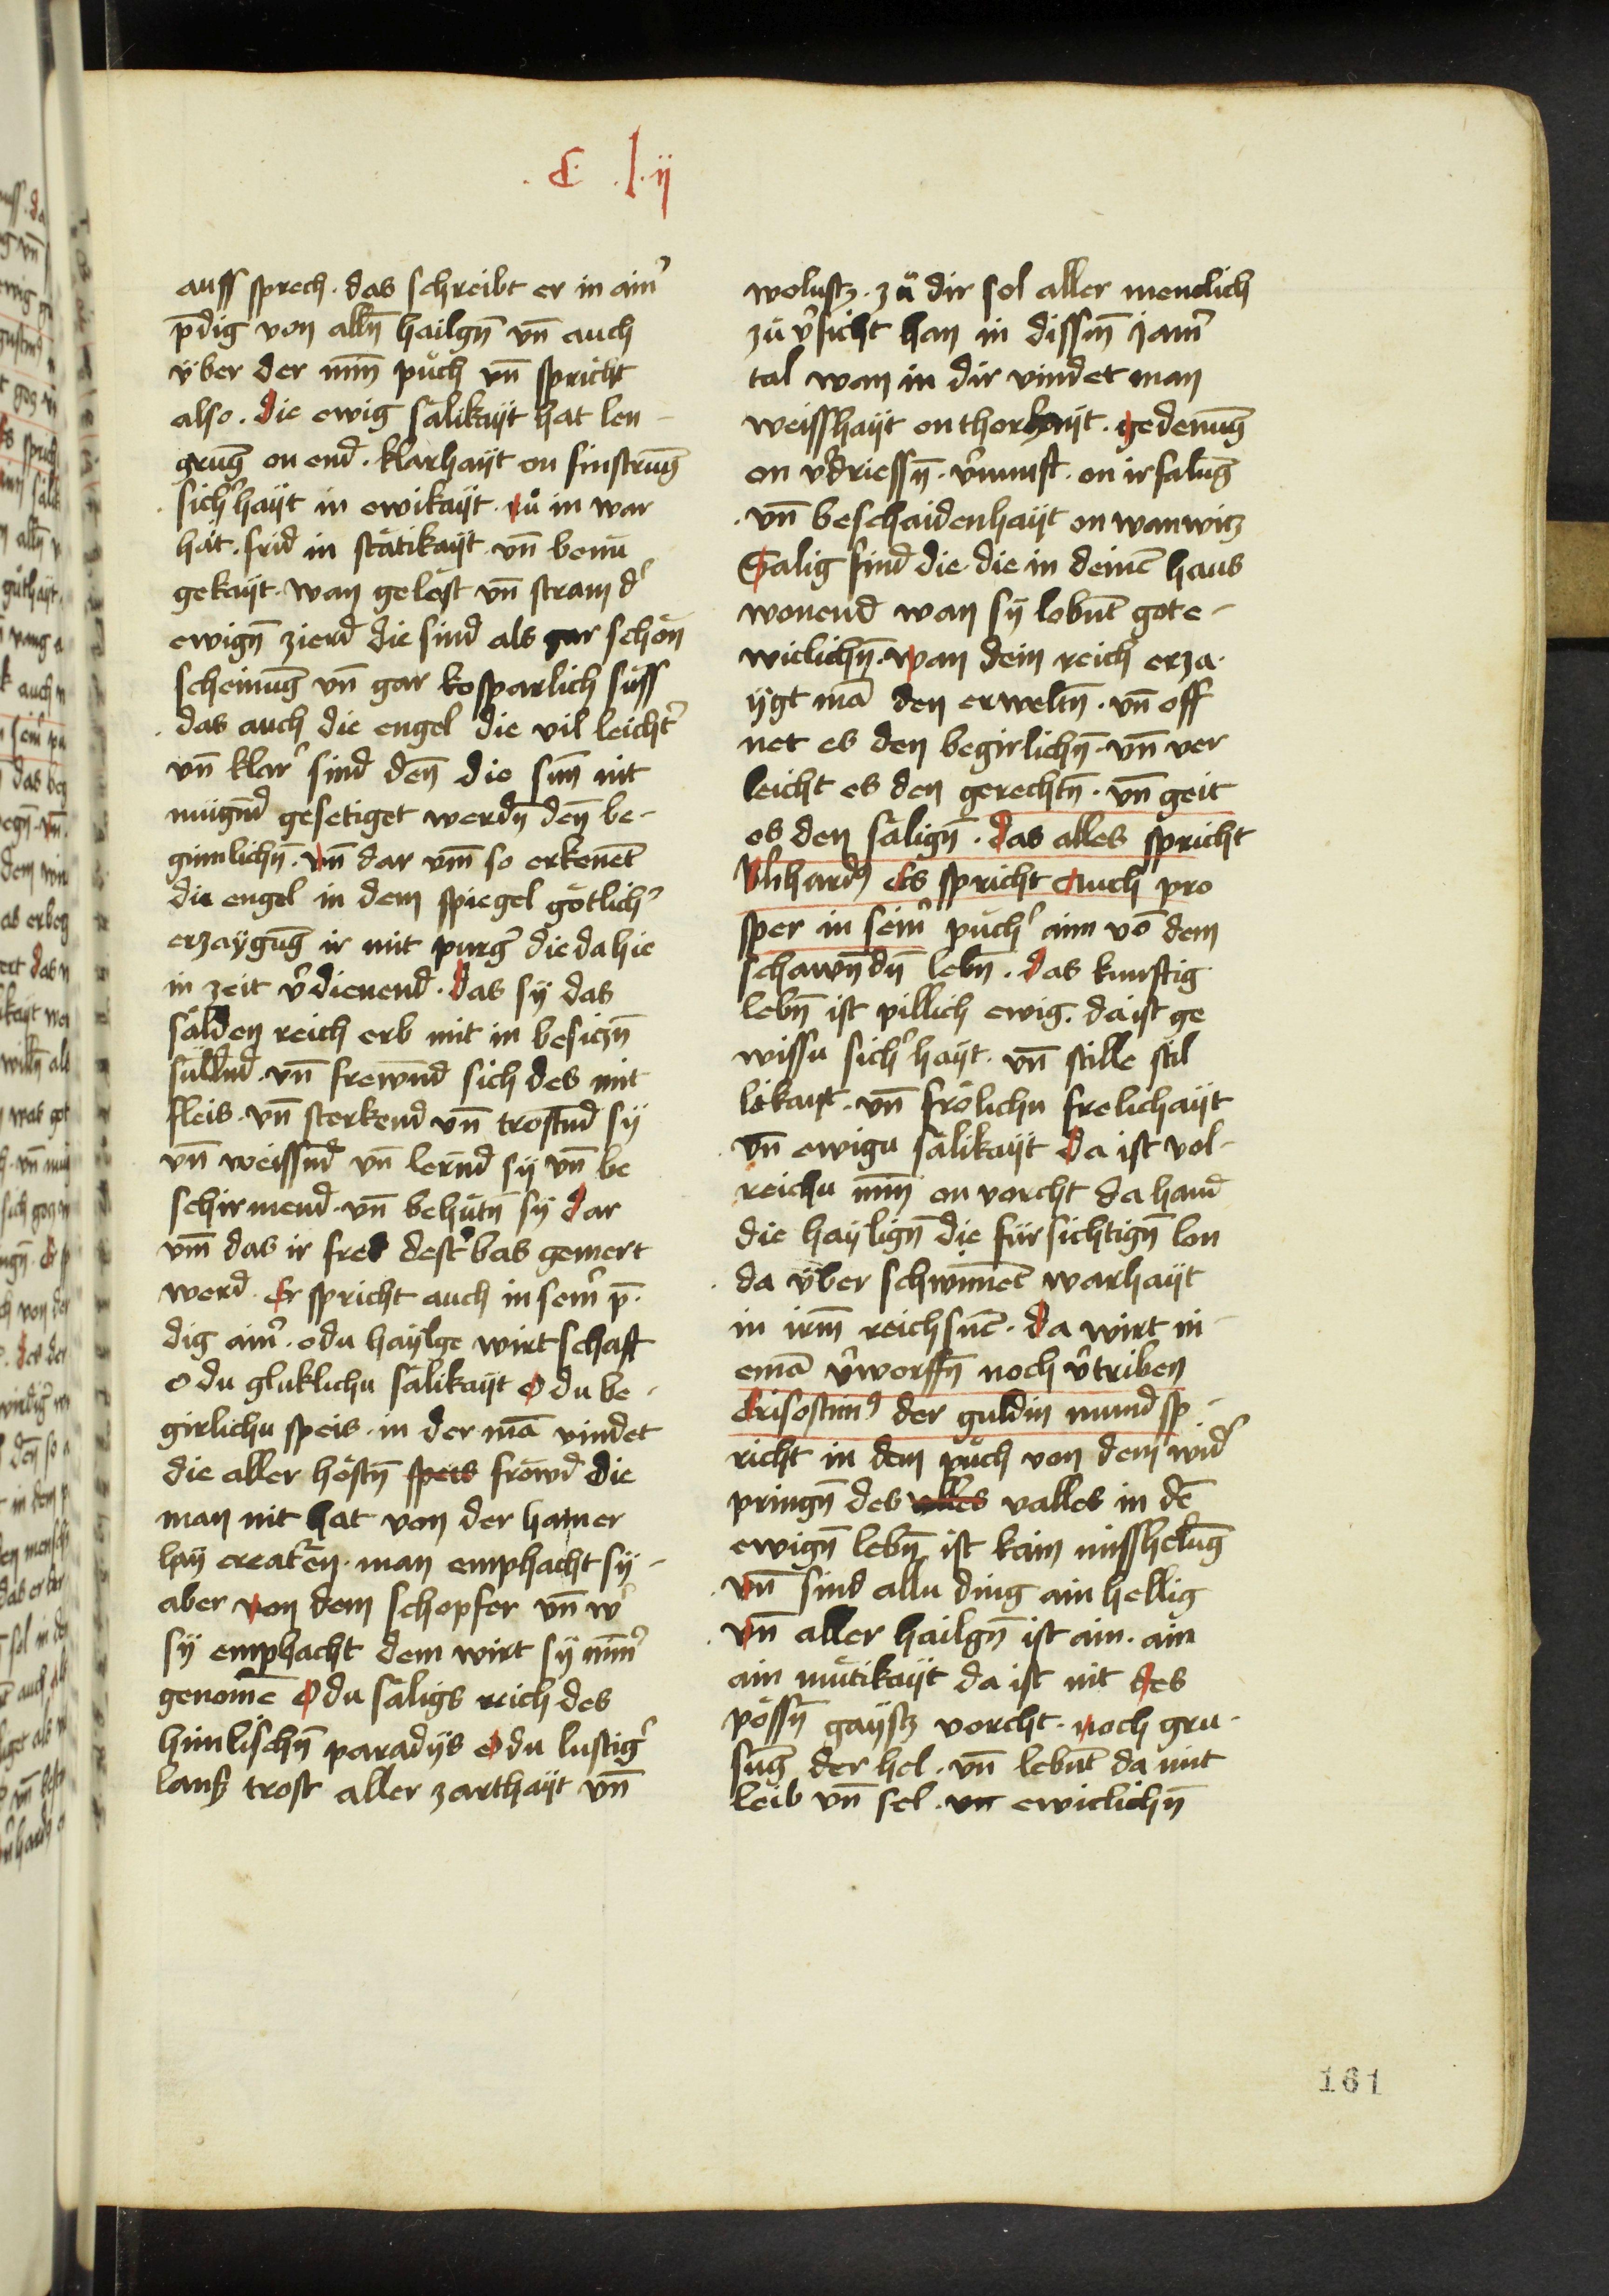 .C. .l.ij
auff sprech. das schreibt er in ainͬ
p̄dig von alln̄ hailgn̄ vn̄ auch
v̈ber der mīn pu̇ch vn̄ spricht
also. Die ewig sa̓likayt hat len-
grun̄g on end. klarhayt on finstrūg
sich͛hayt in ewikayt. ru̇ in war
hāt. frid in sta̓tikayt. vn̄ benu̇
gekayt. wan gelo̓st vn̄ stram d͛
ewign̄ zierd die sind als gar scho̓n
scheinūg vn̄ gar kosparlich su̓ss
das auch die engel die vil leicht͛
vn̄ klar͛ sind den̄ die sun̄ nit
mu̇gn̄d gesetiget werdn̄ den̄ be-
ginnlichn̄. Vn̄ dar vm̄ so erkenēt
die engel in dem spiegel go̓tlich͛
erzaygūg ir mit purg͛ die da hie
in zeit v͛dienend. Das sy das
sa̓lden reich erb mit in besiczn̄
sullnd. vn̄ frewn̄d sich des mit
fleis. vn̄ sterkend vn̄ trostn̄d sy
vn̄ weissn̄d vn̄ lern̄d sy vn̄ be
schirmend. vn̄ behu̇tn̄ sy Dar
vm̄ das ir fred dest͛ bas gemert
werd. Er spricht auch in sein͛ p̄-
dig ain͛. o du haylge wirtschaft
o du gluklichu sa̓likayt O du be-
girlichu speis. in der mā vindet
die aller ho̓stn̄ speis fro̓wd die
man nit hat von der hainer
lay creatr̄en. man emphacht sy-
aber Von dem schopfer vn̄ w͛
sy emphacht dem wirt sy nim͛
genomē O du sa̓ligs reich des
himlischn̄ paradys O du lustig͛
lanß trost aller zarthayt vn̄
wolustz. zu̇ dir sol aller menclich
zu̇ v͛sicht han in dissm̄ jam͛
tal wan in dir vindet man
weisshayt on thorhayt. Gedenūg
on v͛driessn̄. v͛nunft. on irsalūg
vn̄ beschaidenhayt on wanwitz
Sa̓lig sind die. die in deinē haus
wonend wan sy lobn̄t got e-
wiclichn̄. Wan dein reich erza-
ygt mā den erweltn̄. vn̄ off
net es den begirlichn̄. vn̄ ver
leicht es den gerechtn̄. vn̄ geit
es den sa̓lign̄. Das alles spricht
Bn̄hard9 Es spricht Auch pro
sper in sein͛ pu̇ch͛ aim vō dem
schawn̄dn̄ lebn̄. Das kunftig
lebn̄ ist pillich ewig. da ist ge
wissu sich͛hayt. vn̄ stille stil
likayt. vn̄ fro̓lichu frolichayt
vn̄ ewigu sa̓likayt Da ist vol-
reichu mīn on vorcht da hand
die haylign̄ die fu̇rsichtign̄ lon
da v̈ber schwimēt warhayt
in irm̄ reichsnē. Da wirt ni-
emā v͛worffn̄ noch v͛triben
Crisostim9 der guldin mund sp-
richt in dem pu̇ch von dem wid͛
pringn̄ des valles valles in dē
ewign̄ lebn̄ ist kain misshelūg
Vn̄ sind allu ding ain hellig
Vn̄ aller hailgn̄ ist ain. ain
ain mu̇tikayt da ist nit Des
po̓ssn̄ gaystz vorcht. Noch gru-
sūg der hel. vn̄ lebn̄t da mit
leib vn̄ sel. vn̄ ewiclichn̄
161